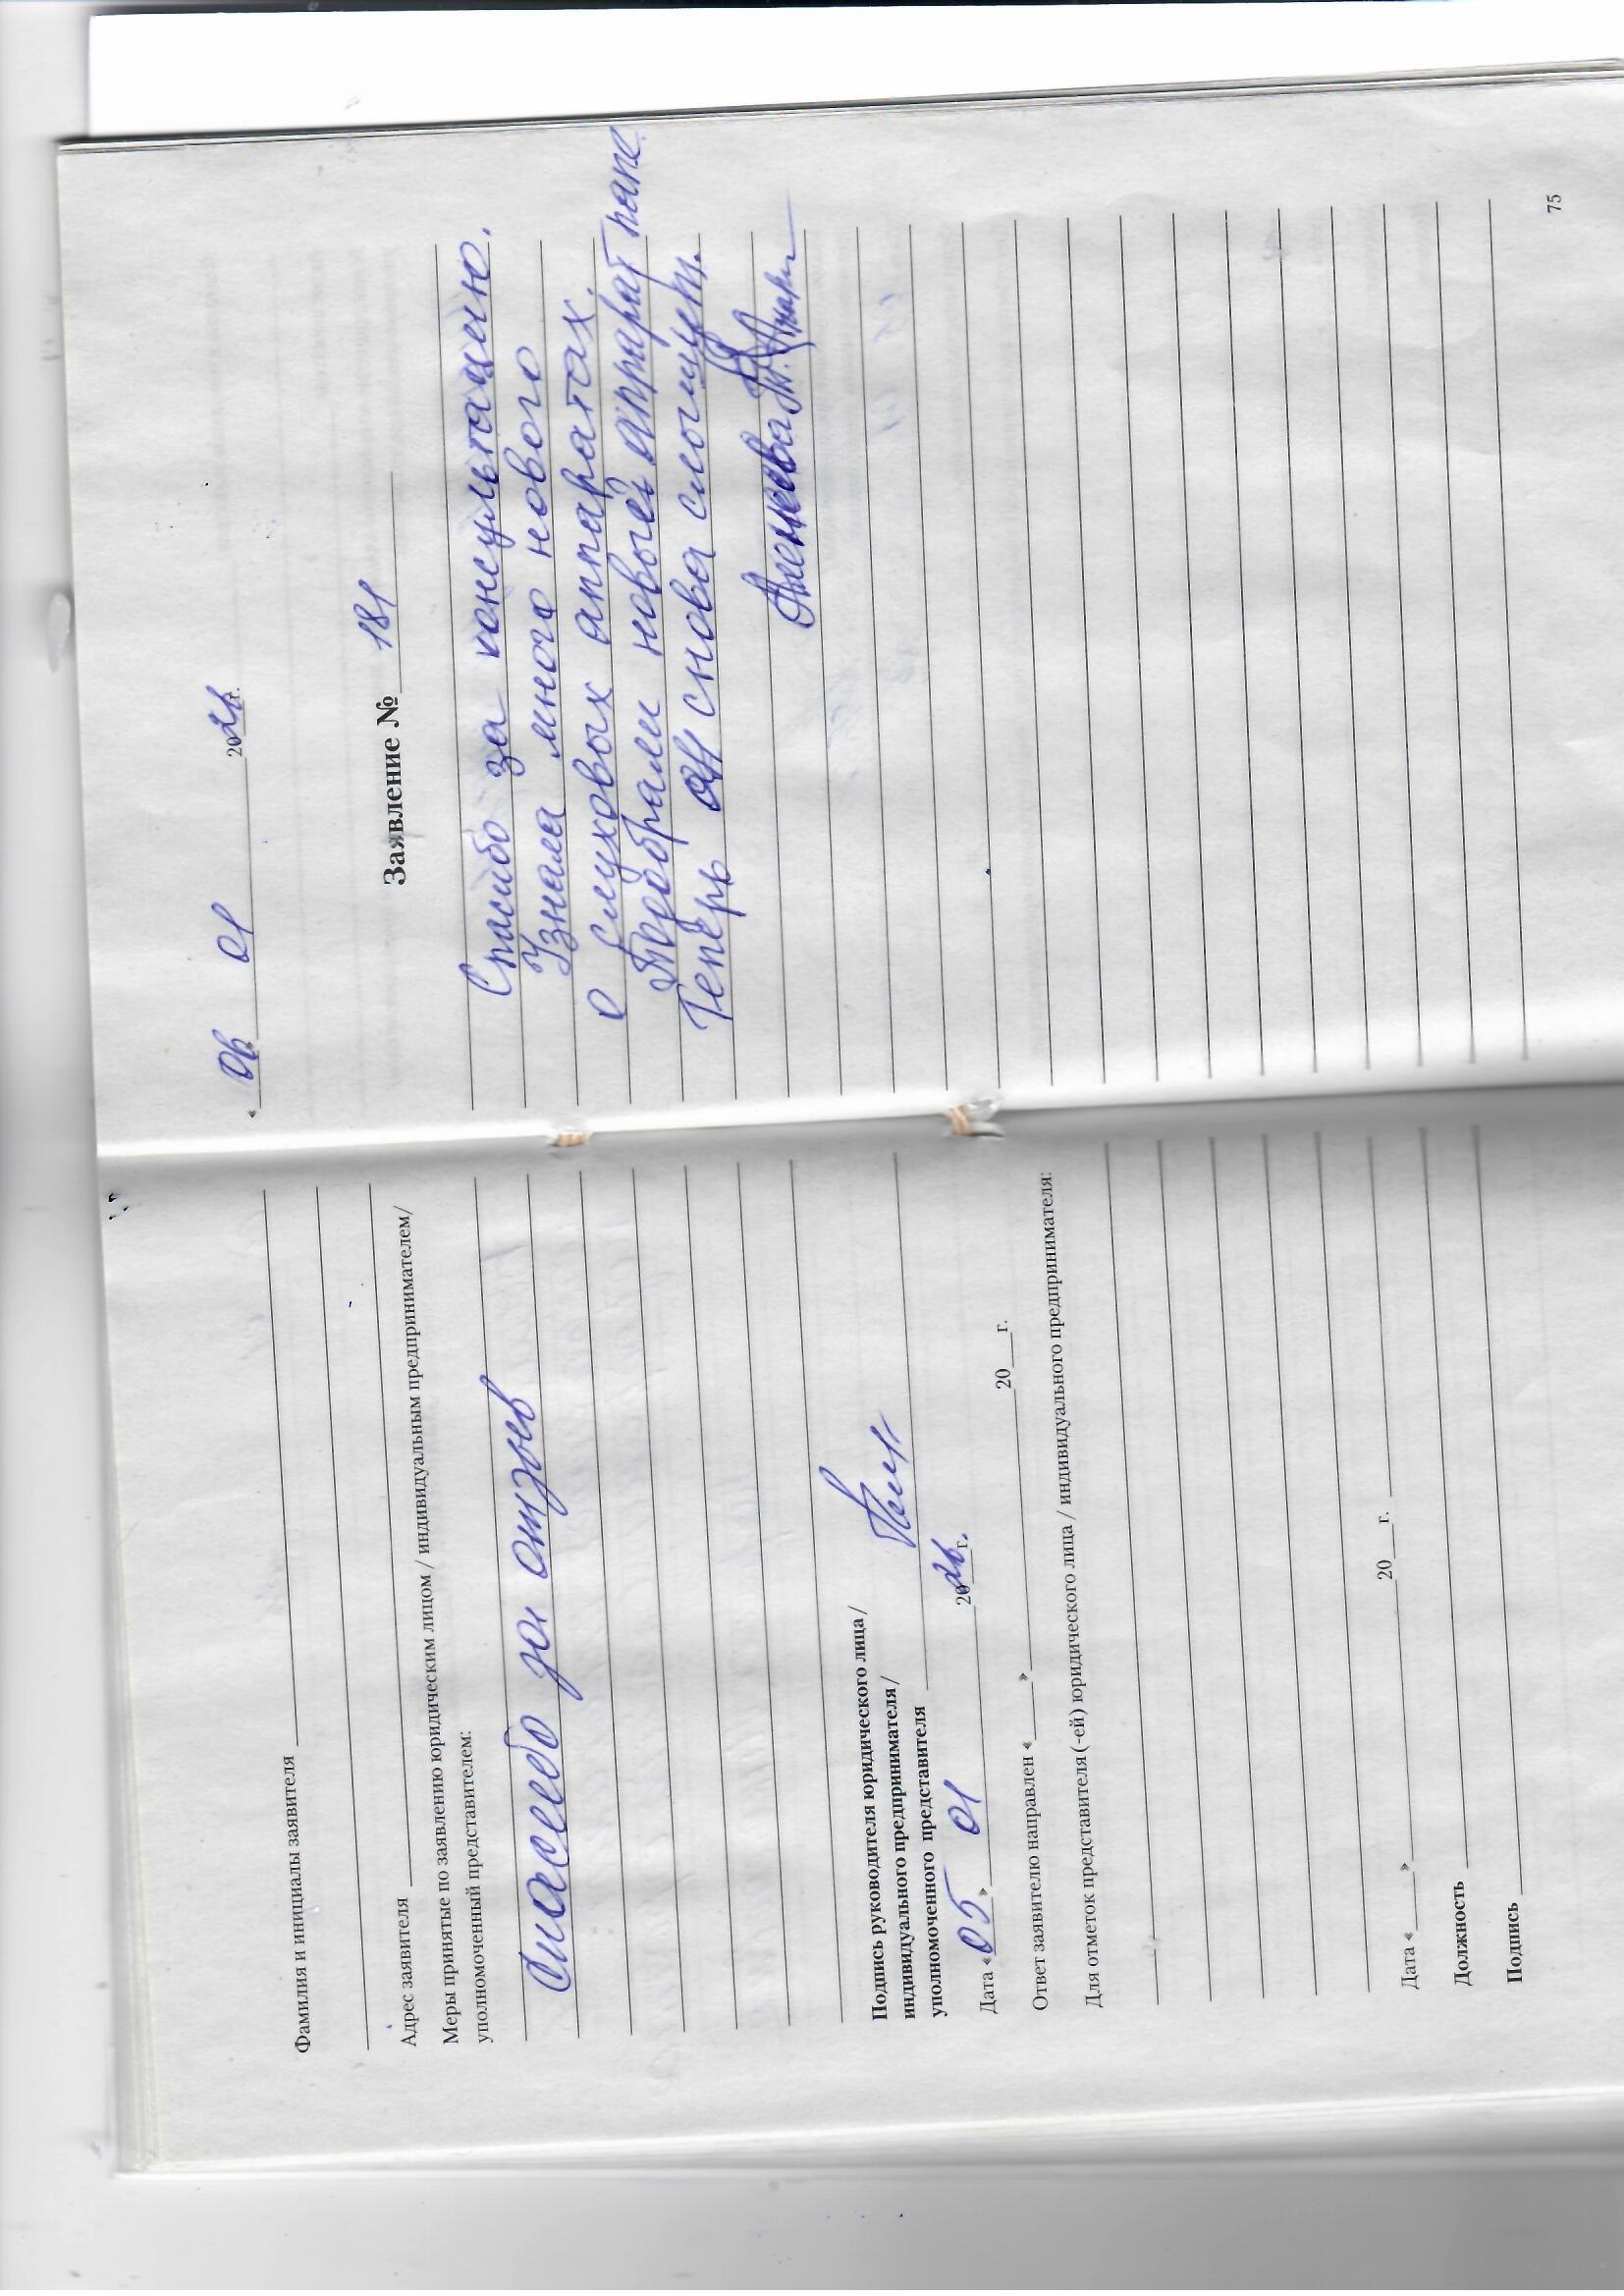 Фамилия и инициалы заявителя
Адрес заявителя
Меры принятые по заявлению юридическим лицом / индивидуальным предпринимателем/
уполномоченный представителем:
Спасибо за отзыв
Подпись руководителя юридического лица/
индивидуального предпринимателя/
уполномоченного представителя
Дата «05» 01 2026г.
Ответ заявителю направлен «___» 20___г.
Для отметок представителя (-ей) юридического лица / индивидуального предпринимателя:
Дата «___» 20___г.
Должность
Подпись
«06» 01 2026г.
Заявление № 181
Спасибо за консультацию.
Узнала много нового
о слуховых аппаратах.
Подобрали новый аппарат папе.
Теперь он снова слышит.
75